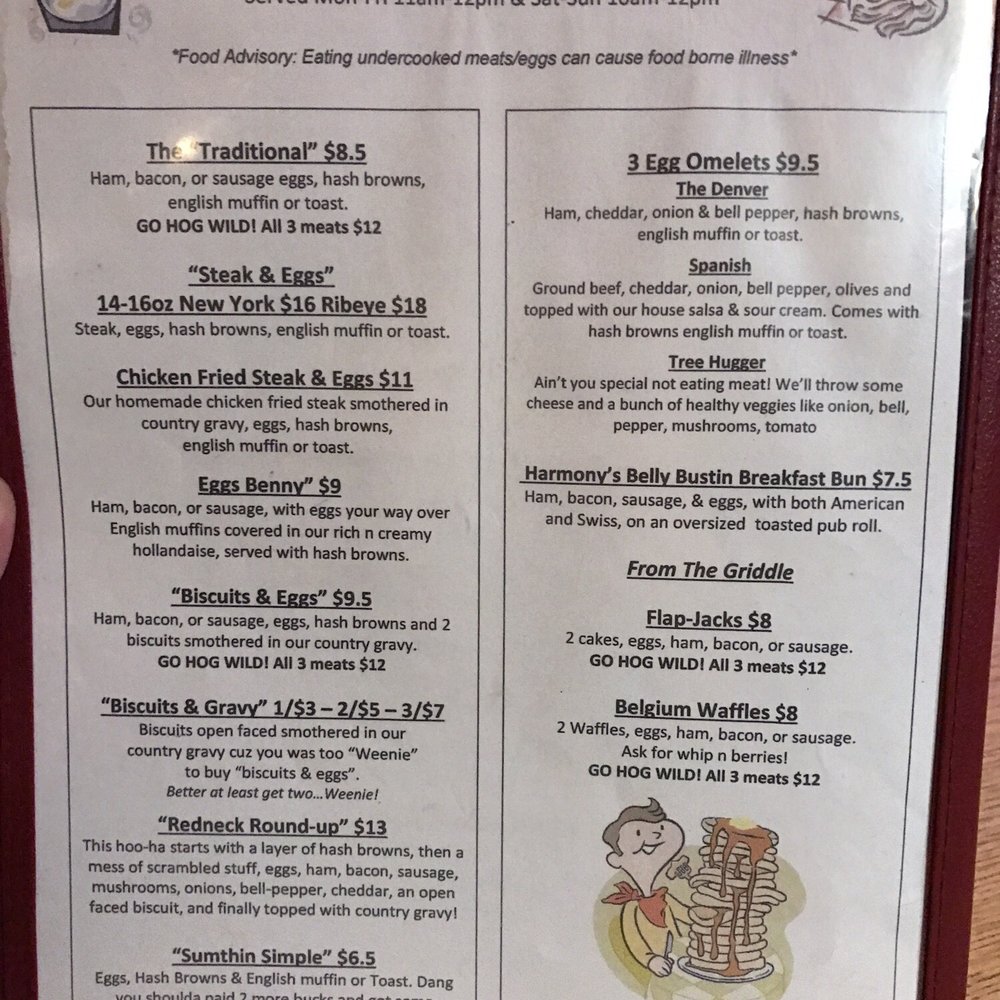 Served Mon-Fri 11am-12pm & Sat-Sun 10am-12pm
*Food Advisory: Eating undercooked meats/eggs can cause food borne illness*
The "Traditional" $8.5
Ham, bacon, or sausage eggs, hash browns,
english muffin or toast.
GO HOG WILD! All 3 meats $12
"Steak & Eggs"
14-16oz New York $16 Ribeye $18
Steak, eggs, hash browns, english muffin or toast.
Chicken Fried Steak & Eggs $11
Our homemade chicken fried steak smothered in
country gravy, eggs, hash browns,
english muffin or toast.
Eggs Benny" $9
Ham, bacon, or sausage, with eggs your way over
English muffins covered in our rich n creamy
hollandaise, served with hash browns.
"Biscuits & Eggs" $9.5
Ham, bacon, or sausage, eggs, hash browns and 2
biscuits smothered in our country gravy.
GO HOG WILD! All 3 meats $12
"Biscuits & Gravy" 1/$3 – 2/$5 – 3/$7
Biscuits open faced smothered in our
country gravy cuz you was too "Weenie"
to buy "biscuits & eggs".
Better at least get two...Weenie!
"Redneck Round-up" $13
This hoo-ha starts with a layer of hash browns, then a
mess of scrambled stuff, eggs, ham, bacon, sausage,
mushrooms, onions, bell-pepper, cheddar, an open
faced biscuit, and finally topped with country gravy!
"Sumthin Simple" $6.5
Eggs, Hash Browns & English muffin or Toast. Dang
you shoulda paid 2 more bucks and got some
3 Egg Omelets $9.5
The Denver
Ham, cheddar, onion & bell pepper, hash browns,
english muffin or toast.
Spanish
Ground beef, cheddar, onion, bell pepper, olives and
topped with our house salsa & sour cream. Comes with
hash browns english muffin or toast.
Tree Hugger
Ain't you special not eating meat! We'll throw some
cheese and a bunch of healthy veggies like onion, bell,
pepper, mushrooms, tomato
Harmony's Belly Bustin Breakfast Bun $7.5
Ham, bacon, sausage, & eggs, with both American
and Swiss, on an oversized toasted pub roll.
From The Griddle
Flap-Jacks $8
2 cakes, eggs, ham, bacon, or sausage.
GO HOG WILD! All 3 meats $12
Belgium Waffles $8
2 Waffles, eggs, ham, bacon, or sausage.
Ask for whip n berries!
GO HOG WILD! All 3 meats $12